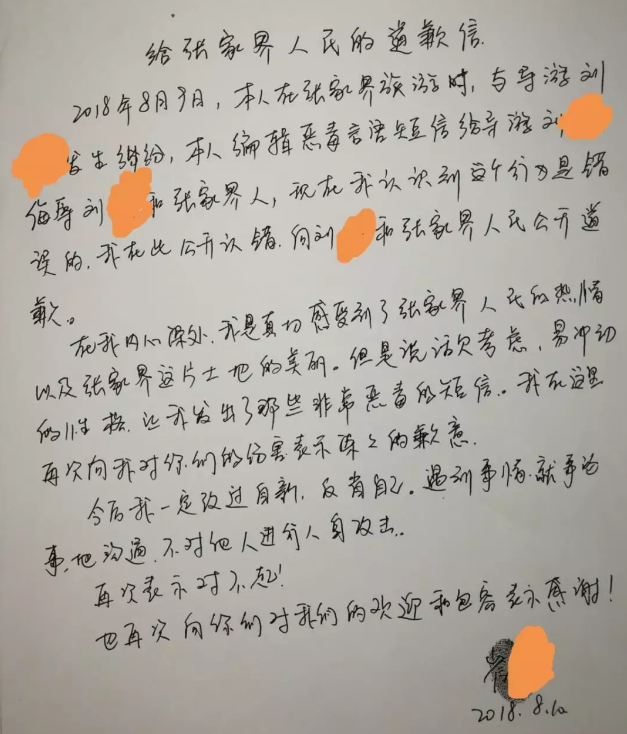 给张家界人民的道歉信
2018年8月9日，本人在张家界旅游时，与导游刘
发生纠纷，本人编辑恶毒言语短信给导游刘
侮辱刘和张家界人，现在我认识到这个行为是错
误的，我在此公开认错，向刘和张家界人民公开道
歉。
在我内心深处，我是真切感受到了张家界人民的热情
以及张家界这片土地的美丽。但是说话欠考虑，易冲动
的性格，让我发出了那些非常恶毒的短信。我在这里
再次向我对你们的伤害表示深深的歉意。
今后我一定改过自新，反省自己。遇到事情就事论
事地沟通，不对他人进行人身攻击。
再次表示对不起！
也再次向你们对我们的欢迎和包容表示感谢！
2018.8.10